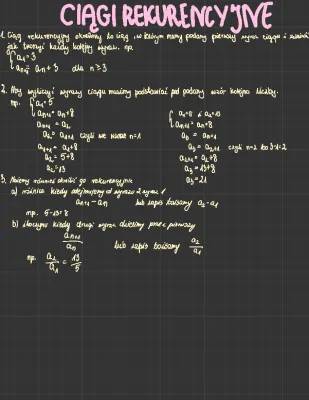 CIĄGI REKURENCYJNE
1. Ciąg rekurencyjny określony to ciąg, w którym mamy podany pierwszy wyraz ciągu i
jak tworzyć każdy kolejny wyraz. np.
a₁=3
aₙ+3 dla n≥3
2. Aby wyliczyć wyrazy ciągu musimy podstawiać pod podany wzór kolejne liczby.
np. a₁=5
aₙ₊₁=aₙ+8
aₙ₊₁=a₂
a₂=a₁₊₁ czyli n=1
a₁₊₁=a₁+8
a₂=5+8
a₂=13
a₂=13
aₙ₊₁=aₙ+8
a₃=aₙ₊₁
a₃=a₂₊₁ czyli n=2 bo 3-1=2
a₂₊₁=a₂+8
a₃=13+8
a₃=21
3. Możemy również określić go rekurencyjnie
a) różnica kiedy odejmujemy od wyrazu 2 wyraz 1
aₙ₊₁-aₙ lub zapis a₂-a₁
np. 5-13=8
b) kiedy drugi wyraz dzielimy przez pierwszy
aₙ₊₁/aₙ lub zapis a₂/a₁
np. a₂/a₁=13/5